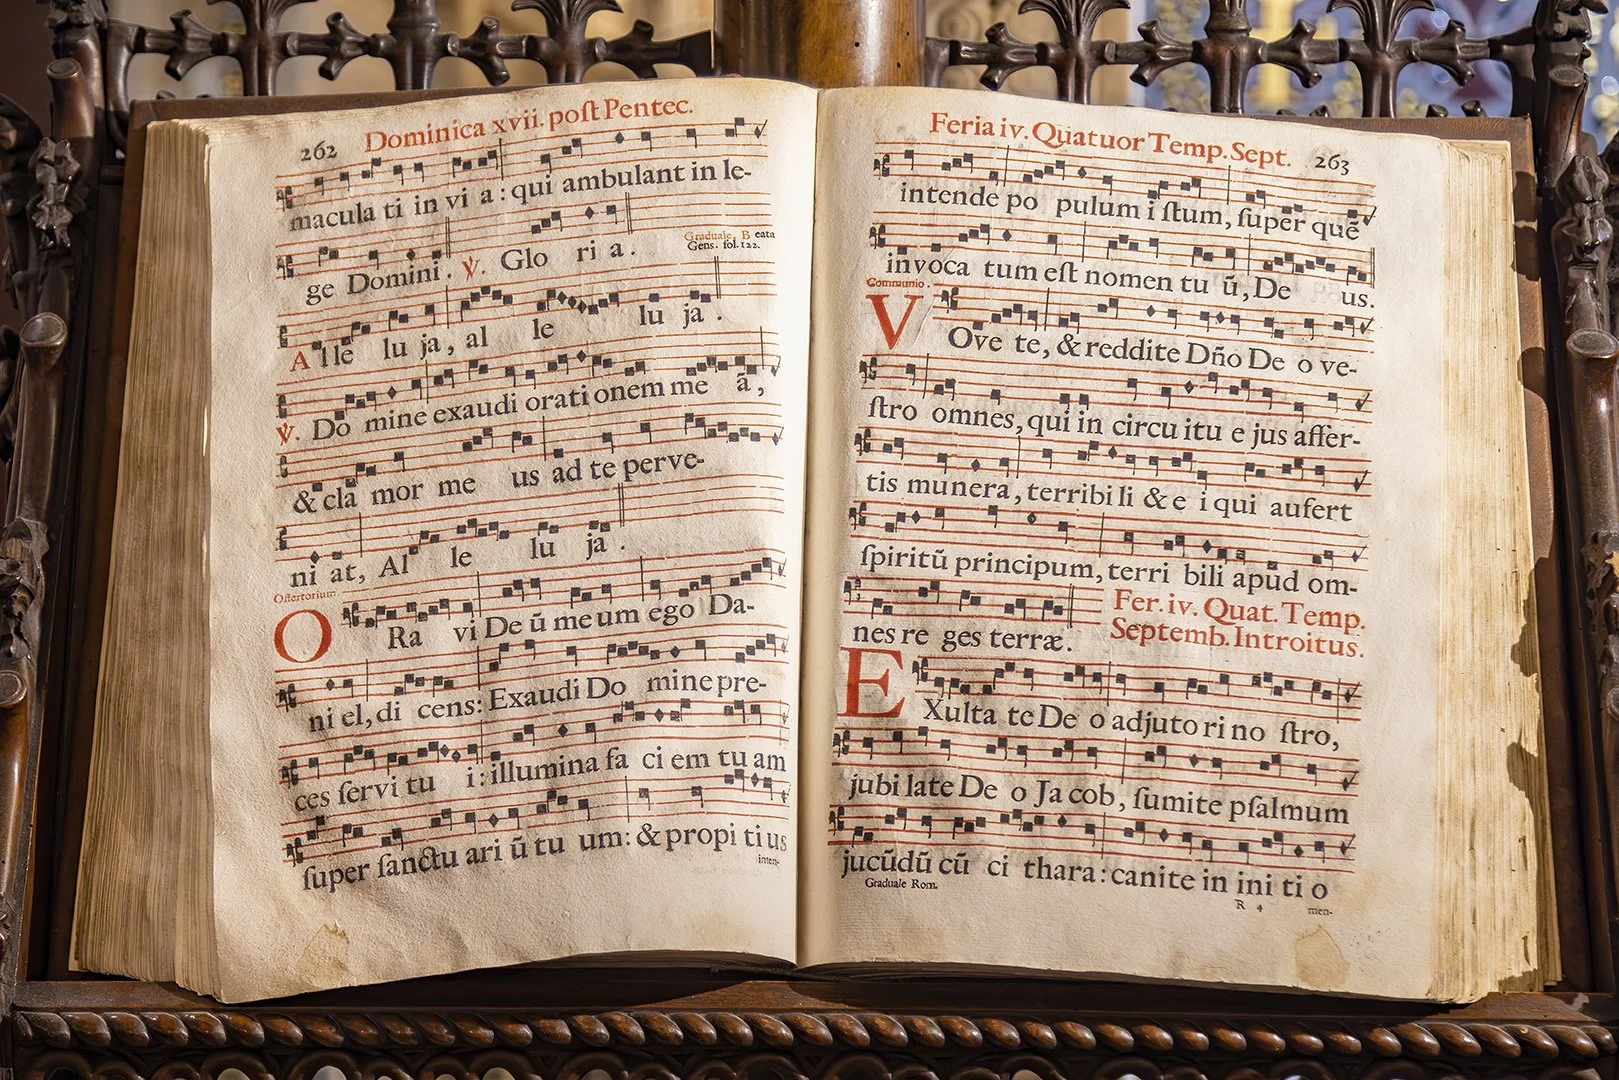 262 Dominica xvii. poſt Pentec.
macula ti in vi a : qui ambulant in le-
ge Domini. ℣. Glo ri a.
Graduale, B eata
Gens. fol. 122.
Alle lu ja, al le lu ja.
℣. Do mine exaudi orati onem me ā,
& cla mor me us ad te perve-
ni at, Al le lu ja.
Offertorium.
O Ra vi De ū me um ego Da-
ni el, di cens: Exaudi Do mine pre-
ces ſervi tu i: illumina fa ci em tu am
ſuper ſanctu ari ū tu um: & propi ti us
inten-
Feria iv. Quatuor Temp. Sept. 263
intende po pulum i ſtum, ſuper quē
invoca tum eſt nomen tu ū, De us.
Communio.
V Ove te, & reddite Dño De o ve-
ſtro omnes, qui in circu itu e jus affer-
tis munera, terribi li & e i qui aufert
ſpiritū principum, terri bili apud om-
nes re ges terræ.
Fer. iv. Quat. Temp.
Septemb. Introitus.
E Xulta te De o adjuto ri no ſtro,
jubi late De o Ja cob, ſumite pſalmum
jucūdū cū ci thara: canite in ini ti o
Graduale Rom. R 4 men-